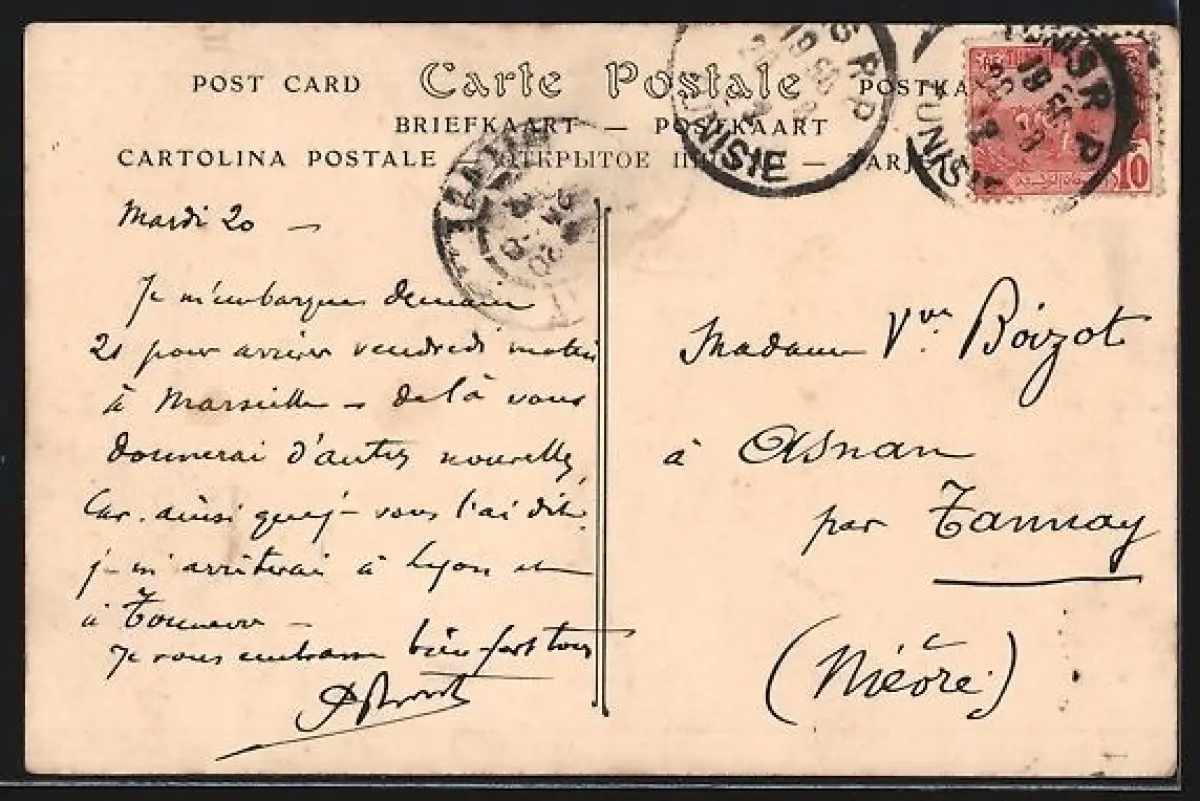 POST CARD Carte Postale POSTKA
BRIEFKAART — POSTKAART
CARTOLINA POSTALE — ОТКРЫТОЕ — TARJE
TUNIS R P
TUNISIE
TUNIS R P
TUNISIE
10
Mardi 20 —
Je m'embarque demain
21 pour arriver vendredi matin
à Marseille — de là vous
donnerai d'autres nouvelles,
Car. ainsi que je vous l'ai dit.
je m'arrêterai à Lyon et
à Tonnerre —
Je vous embrasse bien fort tous
Madame Vve Boizot
à Asnan
par Tannay
(Nièvre)